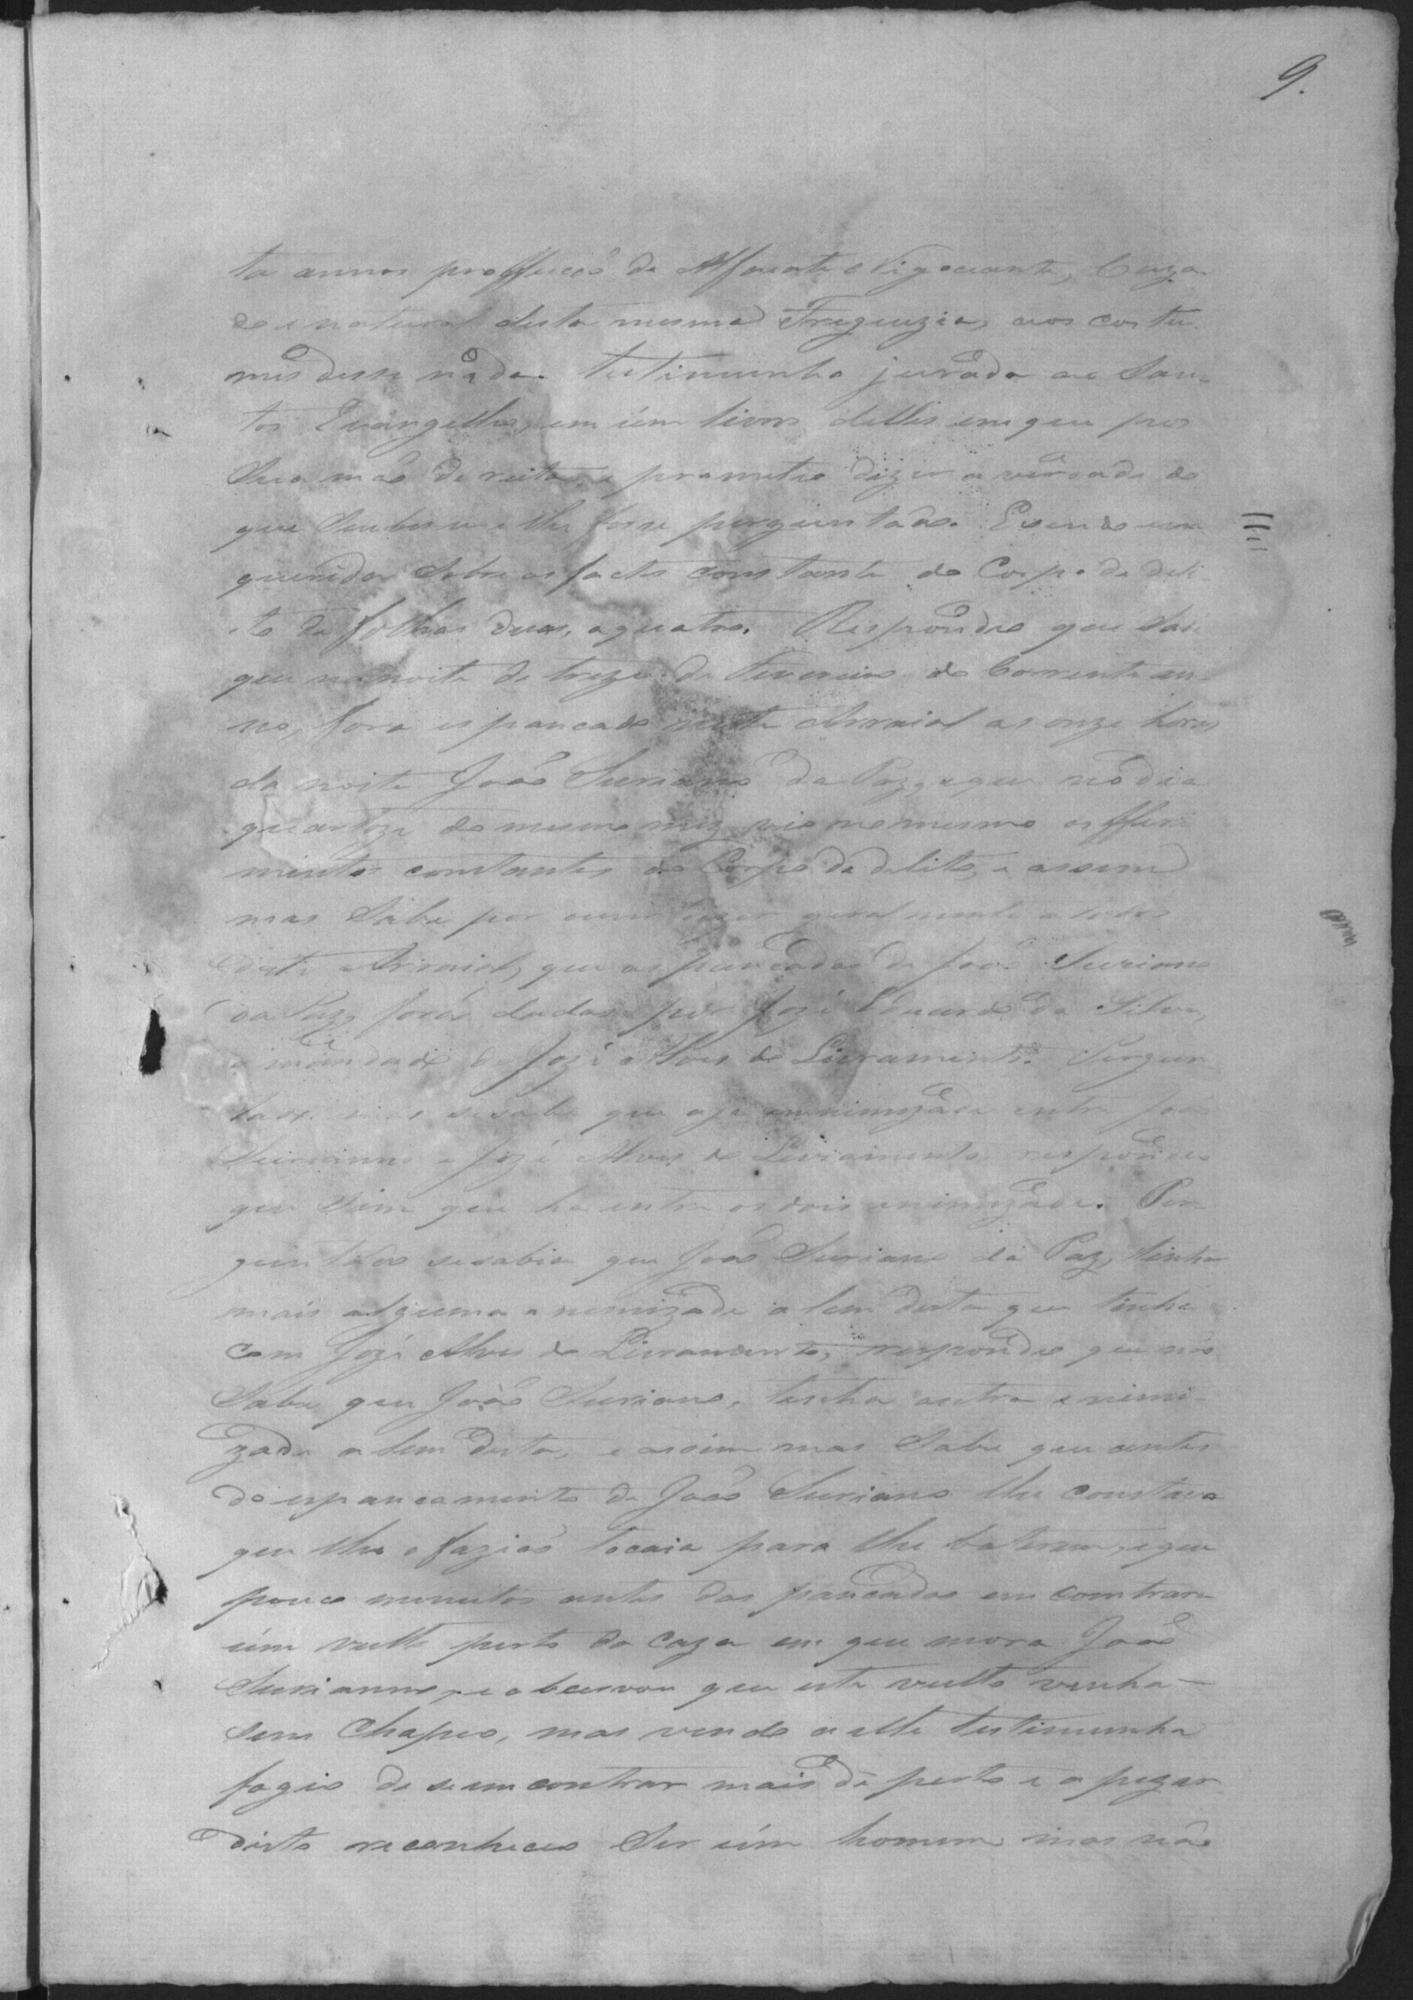 9.
ta annos proffição de Alfaiate e Nigociante, Caza
do e natural desta mesma Freguezia, aos costu
mes disse nada. Testimunha jurada aos San-
tos Evangelhos, em úm livro delles em que pos
Sua mão direita, e prometeo dizer a verdade do
que Soubesse e lhe fosse perguntado. E sendo in
querido Sobre os factos constante do Corpo de deli-
to de folhas duas, a quatro. Respondeo que Sabe
que na noite de treze de Fevereiro do Corrente an-
no, fora espancado neste Arraial as onze horas
da noite João Suriano da Paz, e que no dia
quatorze do mesmo mez vio no mesmo os fferi
mentos constantes do Corpo de delito, e assim
mas Sabe por ouvir dizer geral mente a todos
deste Arraial, que as pancadas de João Suriano
da Paz forão dadas por José Eduardo da Silva,
a mandado de Jozé Alves do Livramento. Pergun
tado mas se sabe que aja inimizade entre João
Surianno e Jozé Alves do Livramento respondeo
que Sim que ha entre os dois inimizade. Per
guntado se sabia que João Suriano da Paz, tinha
mais alguma enemizade a lem desta que tinha
Com Jozé Alves do Livramento, respondeo que não
Sabe que João Suriano, tenha outra enimi-
zade a lem desta, e assim mas Sabe que antes
do espancamento de João Suriano lhe constava
que lhe fazião tocaia para lhe baterem, e que
pouco momentos antes das pancadas em contrara
úm vulto perto da caza em que mora João
Surianno, e observou que este vulto vinha
Sem Chapeo, mas vendo a elle testimunha
fogio de se em contrar mais de perto e a pezar
disto reconheceo Ser úm homem mas não